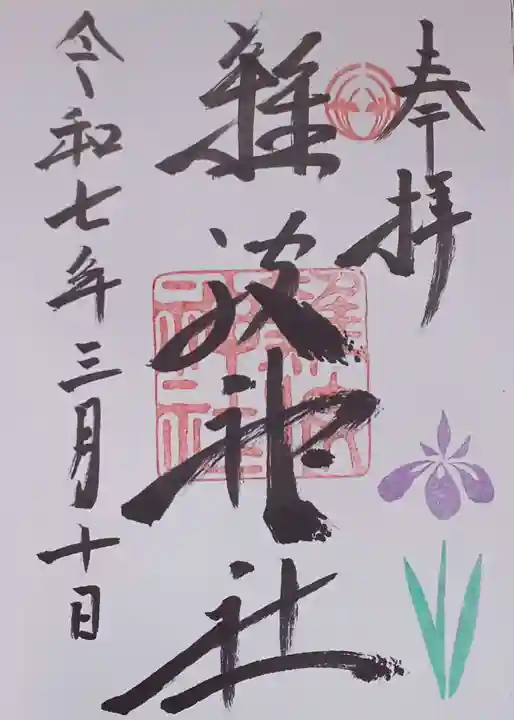 奉拝
難波神社
令和七年三月十日